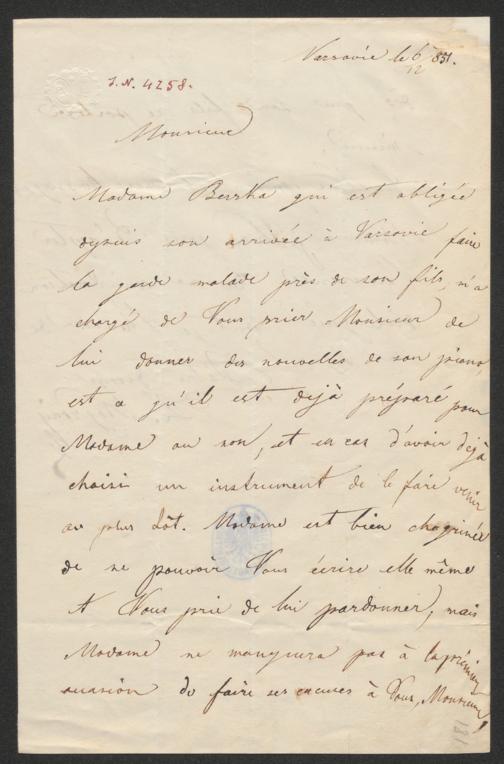 Varsovie le 6/12 851.
I.N. 4258.
Monsieur
Madame Berzka qui est obligée
depuis son arrivée à Varsovie faire
la garde malade près de son fils, m'a
chargé de Vous prier Monsieur de
lui donner des nouvelles de son piano
est a qu'il est dejà préparé pour
Madame ou non, et en cas d'avoir dejà
choisi un instrument de le faire venir
au plus tôt. Madame est bien chagrinée
de ne pouvoir Vous écrire elle même
et Vous prie de lui pardonner, mais
Madame ne manquera pas à la prémiere
occasion de faire ses excuses à Vous, Monsieur,
181